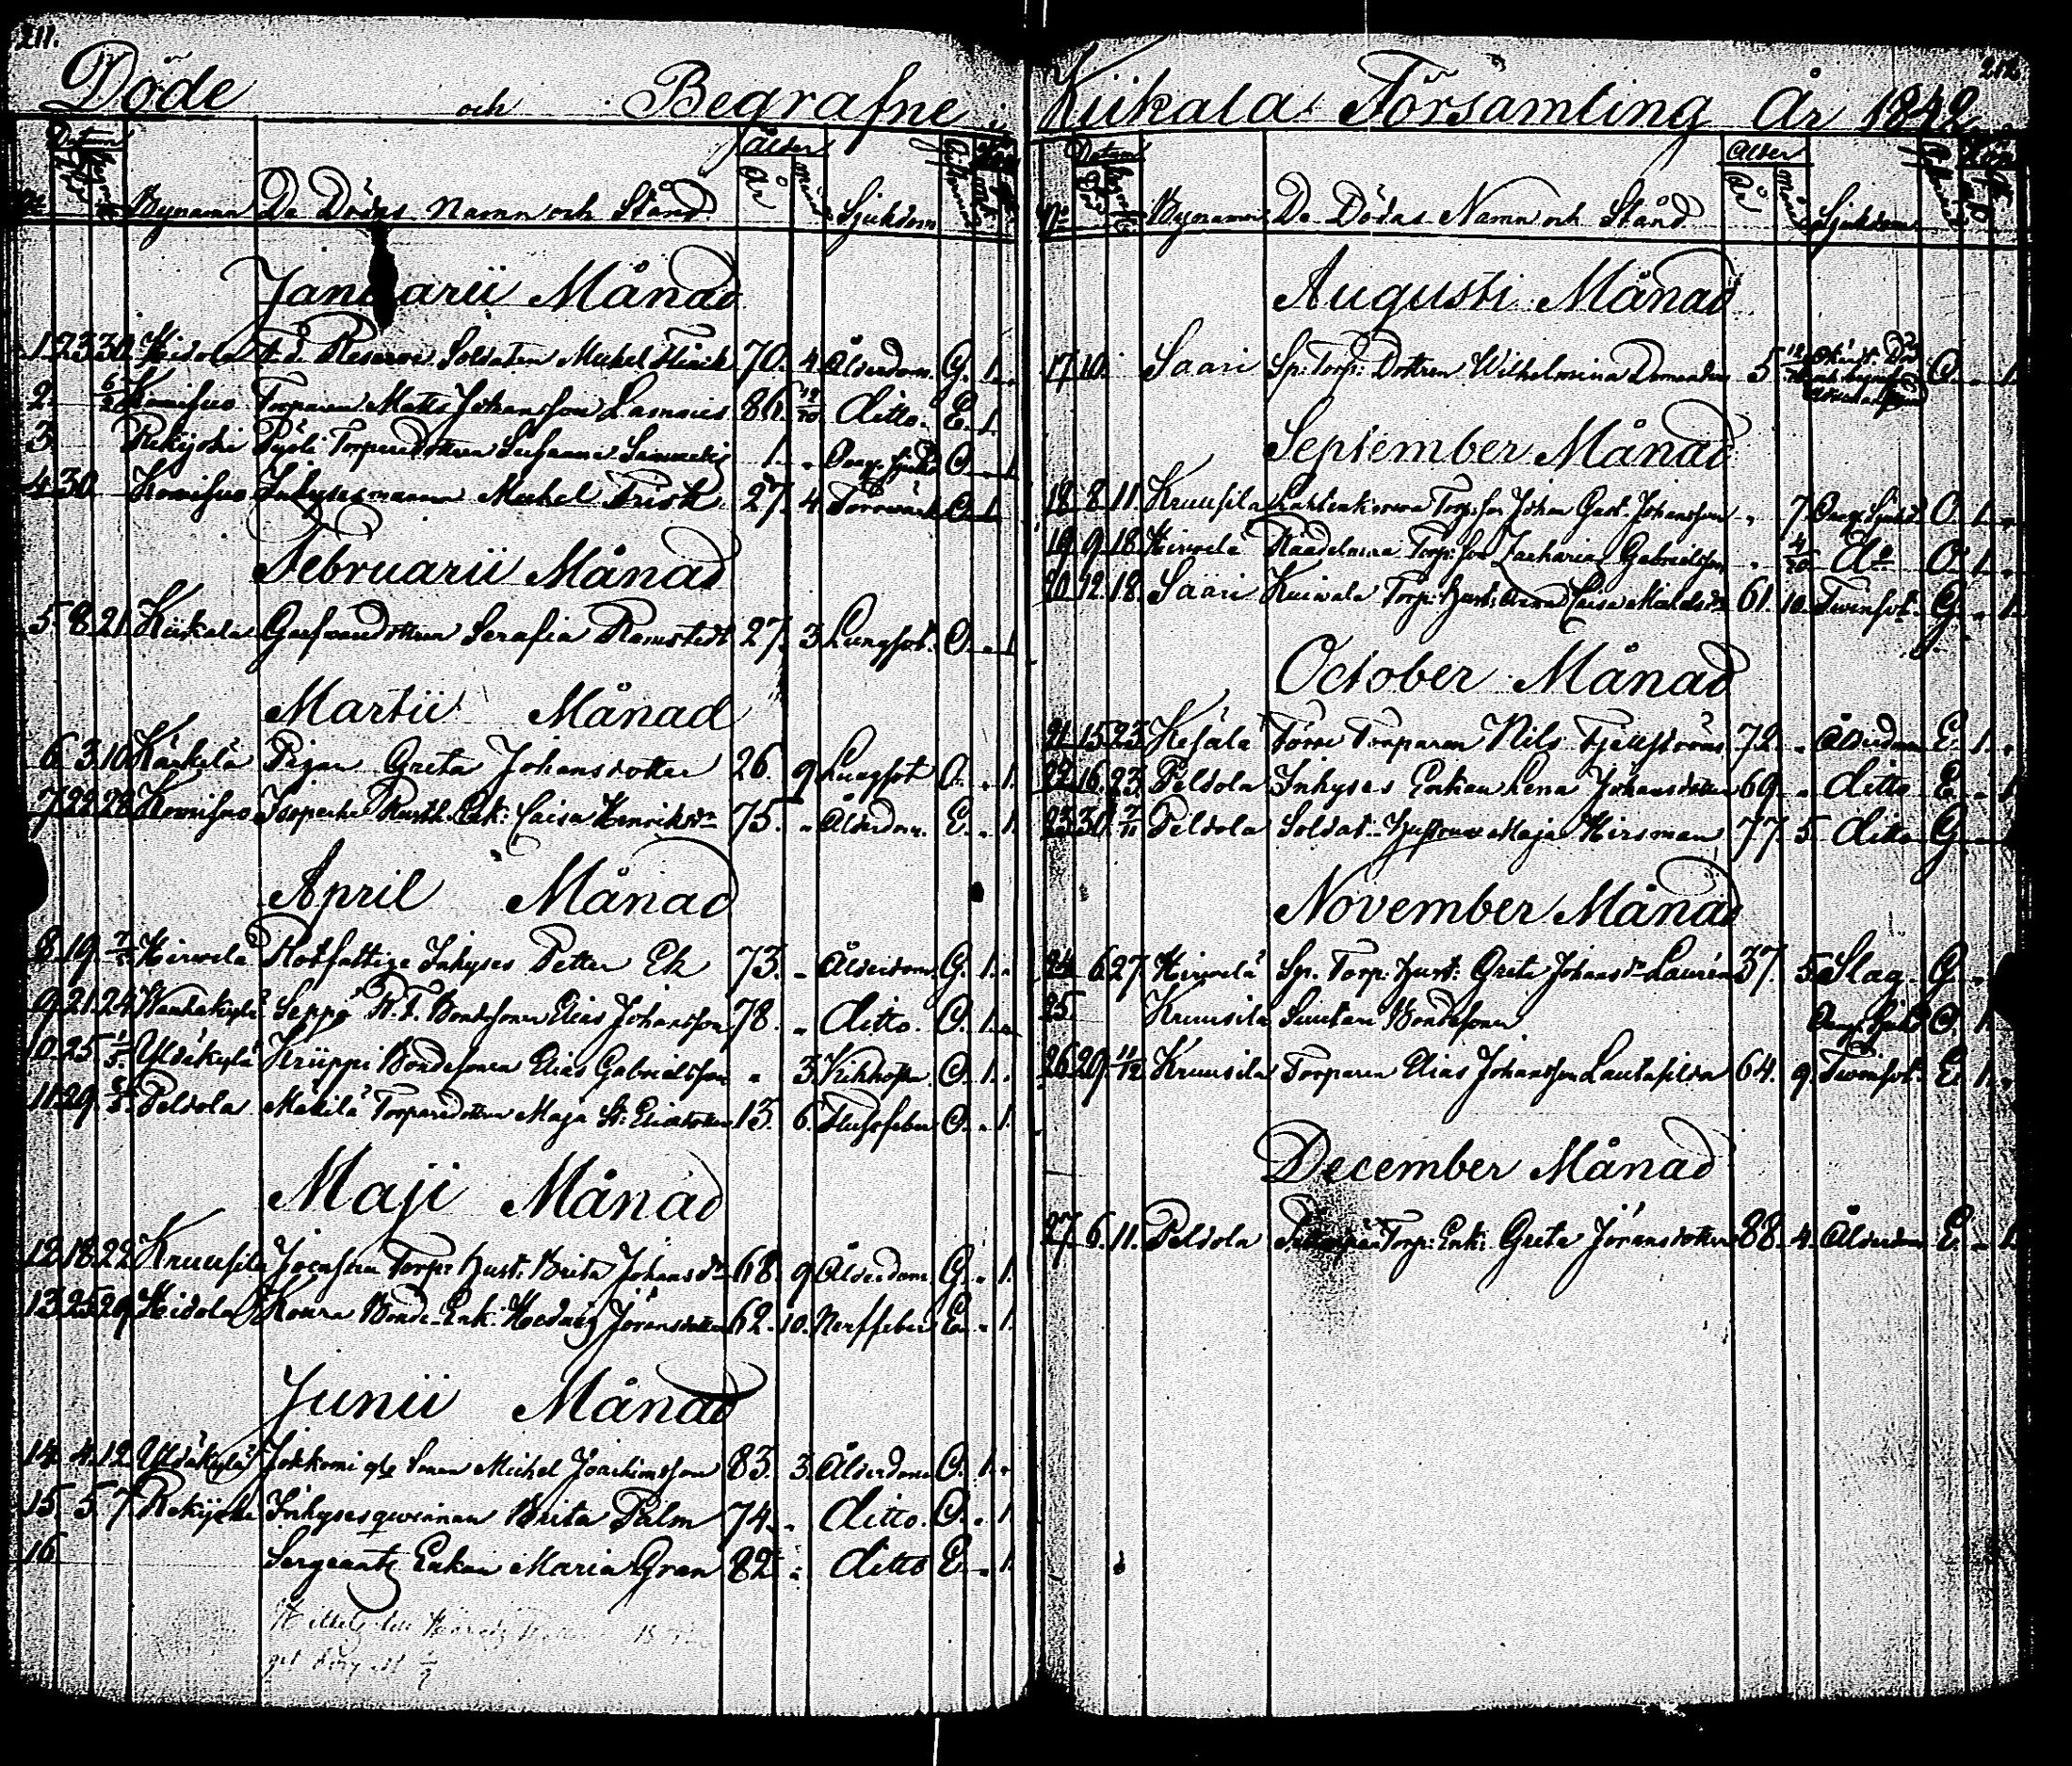 211.
Döde och Begrafne i
Datum Ålder
No Bynamn De Dödas Namn och Stånd År Månad Sjukdom
Januarii Månad
1. 23. 30. Heidola f.d. Reserve Soldaten Michel Flinck 70. 4. Ålderdom. G. 1.
2. 6/2 Komisuo Torparen Matts Johansson 86. ditto. E. 1.
3. Rekijoki Pyöli Torparedottren 1. Ouppg. Sjukd. O. 1.
4. 30. Komisuo Inhysesmannen Michel Frisk 27. 4. O. 1.
Februarii Månad
5. 8. 21. Kiikala Serafia Ramstedt 27. 3. Lungsot. O. 1.
Martii Månad
6. 3. 10. Kärkelä Pigan Greta Johansdotter 26. 9. Lungsot O. 1.
7. 22. 28. Komisuo Rusth. Enk: Caisa Henriksdr 75. Ålderdom. E. 1.
April Månad
8. 19. 7/5 Hirvelä Rotfattige Inhyses Petter Ek 73. Ålderdom. G. 1.
9. 21. 24. Wanhakylä Seppä Bondesonen Elias Johansson 78. ditto. O. 1.
10. 25. 1/5 Yltäkylä Krüppi Bondesonen Elias Gabrielsson 3. Kikhosta. O. 1.
11. 29. Peldola Mäkilä Torparedottren Maja St: Eliedotter 13. 6. Flussfeber O. 1.
Maji Månad
12. 18. 22. Kruusila Torp: Hust: Brita Johansdr 68. 9. Ålderdom G. 1.
13. 25. 29. Heidola Koura Bonde Enk: Hedvig Jöransdotter 62. 10. Nerffeber E. 1.
Junii Månad
14. 4. 12. Yltäkylä Jokkomi Sonen Michel Joachimsson 83. 3. Ålderdom O. 1.
15. 5. 7. Rekijoki Inhysesqvinnan Brita Palm 74. ditto. O. 1.
16 Sergeants Enkan Maria Gran 82. ditto E. 1.
212
Kiikala Församling År 1842
Datum Ålder
No Bynamn De Dödas Namn och Stånd År Månad Sjukdom
Augusti Månad
17. 10. Saari Sp: Torp: Dottren Wilhelmina 5 O. 1.
September Månad
18. 8. 11. Kruusila Lahtenkorva Torp: Son Johan Gust. Johansson 7. Ouppg. Sjukd. O. 1.
19. 9. 18. Hirvelä Torp: Son Zacharias Gabrielsson Do O. 1.
20. 12. 18. Saari Kuivala Torp: Hust: Anna Caisa Michelsdr 61. 10. Twinsot. G. 1.
October Månad
21. 15. 23. Kesälä Förre Torparen Nils Fjellström 72. Ålderdom E. 1.
22. 16. 23. Peldola Inhyses Enkan Lena Johansdotter 69. ditto E. 1.
23. 30. 7/11 Peldola Soldat Hustrun Maja Hirsman 77. 5. ditto G.
November Månad
24. 6. 27. Hirvelä Sp. Torp: Hust: Greta Johansdr Laurén 37. 5. Slag. G.
25. Kruusila Suutari Bondesonen Ouppg. Sjukd. O. 1.
26. 29. 11/12 Kruusila Torparen Elias Johansson Lautasilda 64. 9. Twinsot. E. 1.
December Månad
27. 6. 11. Peldola Torp: Enk: Greta Jöransdotter 88. 4. Ålderdom E. 1.